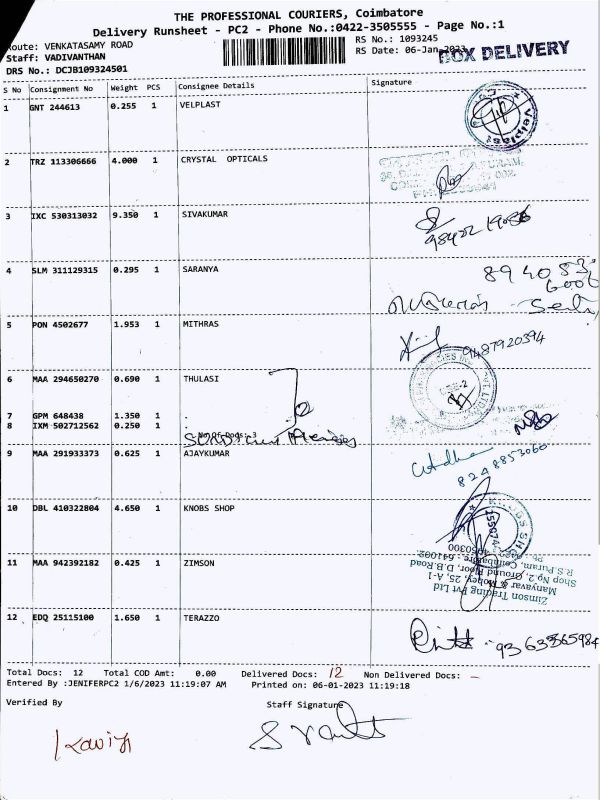 THE PROFESSIONAL COURIERS, Coimbatore
Delivery Runsheet - PC2 - Phone No.:0422-3505555 - Page No.:1
Route: VENKATASAMY ROAD
RS No.: 1093245
Staff: VADIVANTHAN
RS Date: 06-Jan-2023
BOX DELIVERY
DRS No.: DCJB109324501
S No Consignment No Weight PCS Consignee Details Signature
1 GNT 244613 0.255 1 VELPLAST
Velplast
2 TRZ 113306666 4.000 1 CRYSTAL OPTICALS
3 IXC 530313032 9.350 1 SIVAKUMAR
4 SLM 311129315 0.295 1 SARANYA
5 PON 4502677 1.953 1 MITHRAS
9487920394
6 MAA 294650270 0.690 1 THULASI
7 GPM 648438 1.350 1 .
8 IXM 502712562 0.250 1 .
No Of Docs: 3
9 MAA 291933373 0.625 1 AJAYKUMAR
8248853060
10 DBL 410322804 4.650 1 KNOBS SHOP
11 MAA 942392182 0.425 1 ZIMSON
Zimson Trading Pvt Ltd
Manyavar & Mohey, 25, A-1
Shop No.2, Ground Floor, D.B.Road
R.S.Puram, Coimbatore - 641002.
12 EDQ 25115100 1.650 1 TERAZZO
9363565984
Total Docs: 12 Total COD Amt: 0.00 Delivered Docs: 12 Non Delivered Docs: -
Entered By :JENIFERPC2 1/6/2023 11:19:07 AM Printed on: 06-01-2023 11:19:18
Verified By Staff Signature